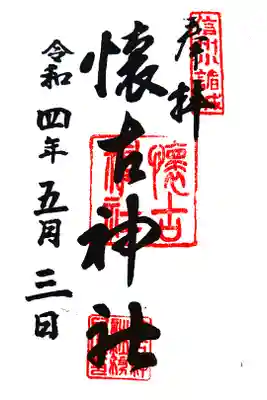 信州小諸城
奉拝
懐古神社
懐古神社
令和四年五月三日